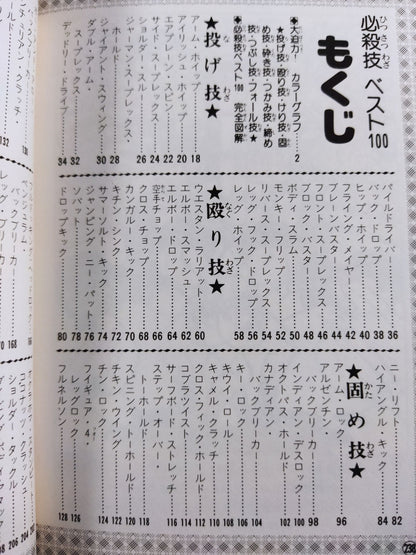 必殺技 ベスト100
もくじ
◆大迫力! カラーグラフ……2
★投げ技・殴り技・けり技・固
め技・砕き技・つかみ技・締め
技・つぶし技・フォール技★
◆必殺技ベスト100 完全図解
★投げ技★
アーム・ホイップ……18
アイリッシュ・ホイップ……20
エアプレーン・スピン……22
サイド・スープレックス……24
ショルダー・スルー……26
ジャーマン・スープレックス・
ホールド……28
ジャイアント・スウィング……30
ダブル・アーム・
スープレックス……32
デッドリー・ドライブ……34
パイルドライバー……36
バック・ドロップ……38
ヒップ・ホイップ……40
フライング・メイヤー……42
ブレーン・バスター……44
フロント・スープレックス……46
ブロック・バスター……48
ボディ・スラム……50
モンキー・フリップ……52
リバース・スープレックス……54
レッグ・ドロップ……56
レッグ・ホイップ……58
★殴り技★
ウエスタン・ラリアット……60
エルボー・スマッシュ……62
エルボー・ドロップ……64
空手チョップ……66
クロス・チョップ……68
カンガルー・キック……70
キチン・シンク……72
サマーソルト・キック……74
ジャンピング・ニー・パット……76
ソバット……78
ドロップキック……80
ニー・リフト……82
ハイアングル・キック……84
★固め技★
アーム・ロック……96
アルゼンチン・
バックブリーカー……98
インディアン・デスロック……100
オクトパス・ホールド……102
カナディアン・
バックブリーカー……104
キー・ロック……106
キウイ・ロール……108
キャメル・クラッチ……110
クロス・フィックス・ホールド……112
コブラツイスト……114
サッフォード・ストレッチ……116
ステップ・オーバー・
トーホールド……118
スピニング・トーホールド……120
チキン・ウイング……122
チン・ロック……124
フィギュア・4・
レッグロック……126
フルネルソン……128